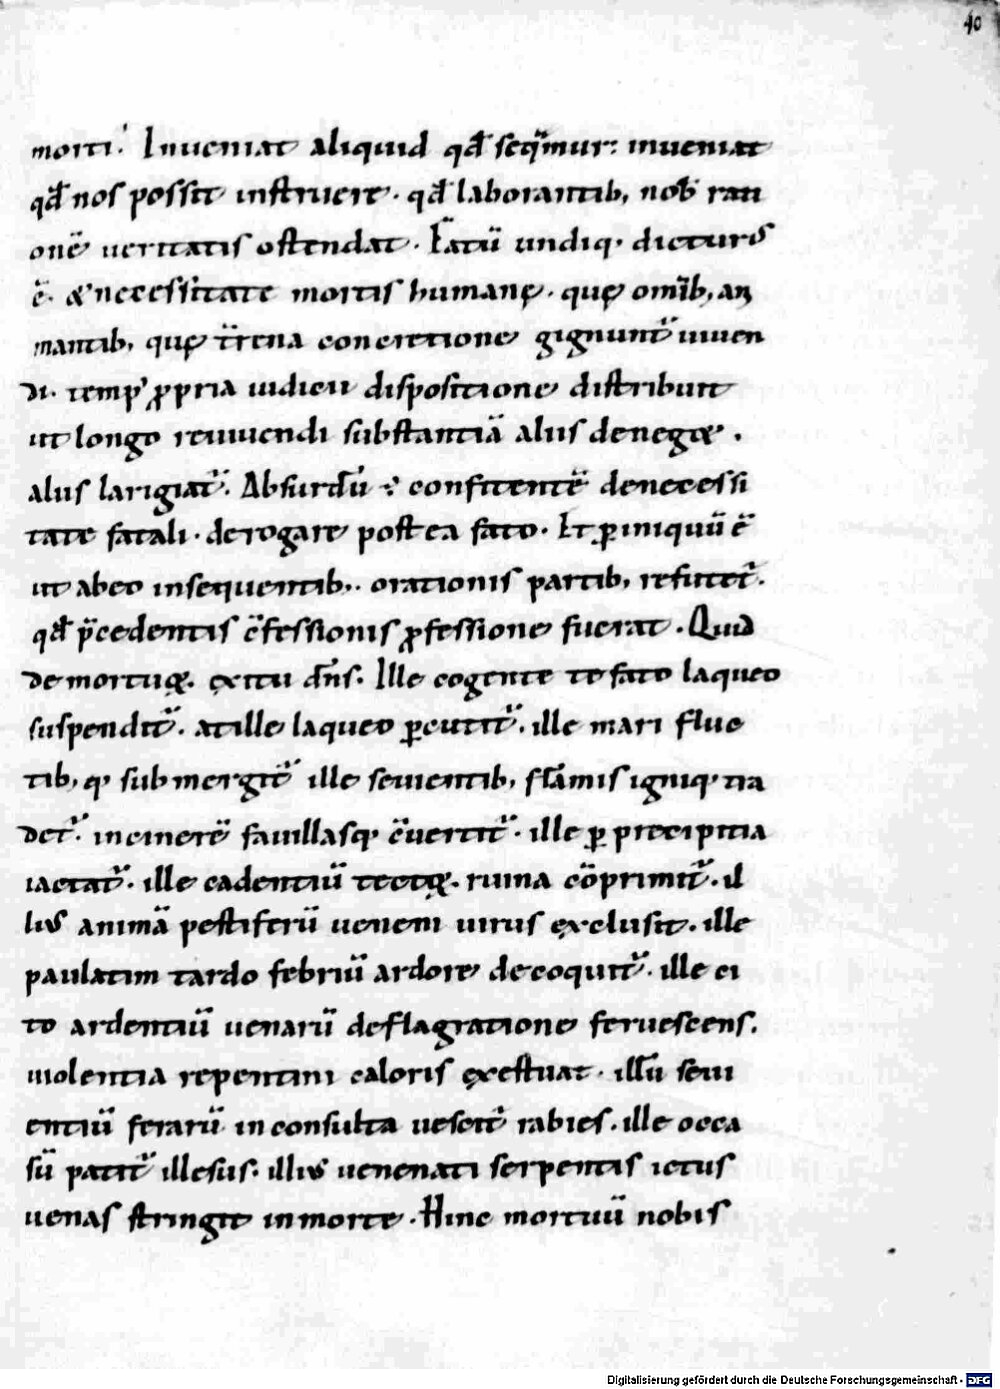 40
morti. Inueniat aliquid qđ seqm̄ur: inueniat
qđ nos possit instruere. qđ laborantib; nob̄ rati
onē ueritatis ostendat. Fatū undiq; dicturus
ē. & necessitate mortis humanę. quę omīb; ani
mantib; quę tr̄rena concretione gignunt̄ uiuen
di. temp' ꝓpria iudicii dispositione distribuit
ut longo reuiuendi substantiā aliis deneget.
aliis largiat̄. Absurdū ÷ confitentē denecessi
tate fatali. derogare postea fato. Et ꝑiniquū ē
ut abeo insequentib; orationis partib; refutet̄.
qđ p̄cedentis c̄fessionis ꝓfessione fuerat. Quid
demortuoꝝ. exitu dn̄s. Ille cogente te fato laqueo
suspendit̄. at ille laqueo ꝑcutit̄. ille mari flue
tib; q; submergit̄ ille seuientib; flāmis igniq; tra
det̄. in cinerē fauillasq; c̄uertit̄. ille ꝑ precipitia
iactat̄. ille cadentiū tectoꝝ. ruina cōprimit̄. il
lius animā pestiferū ueneni uirus exclusit. ille
paulatim tardo febriū ardore decoquit̄. ille ci
to ardentiū uenarū deflagratione feruescens.
uiolentia repentini caloris exestuat. illū seui
entiū ferarū inconsulta uescit̄ rabies. ille occa
sū patit̄ illesus. illius uenenati serpentis ictus
uenas stringit in morte. Hinc mortuū nobis
Digitalisierung gefördert durch die Deutsche Forschungsgemeinschaft - DFG